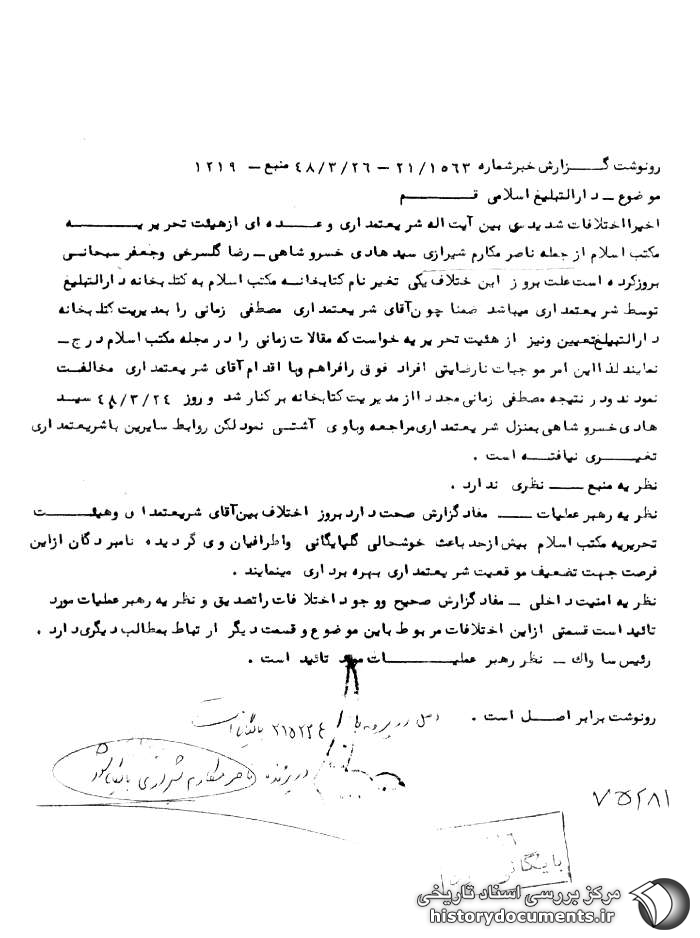 رونوشت گـــزارش خبرشماره ۲۱/۱۵۶۳ – ۴۸/۳/۲۶ منبع – ۱۲۱۹
موضوع – دارالتبلیغ اسلامی قـــم
اخیرااختلافات شدیدی بین آیت اله شریعتمداری وعده ای ازهیئت تحریریـه
مکتب اسلام از جمله ناصر مکارم شیرازی سید هادی خسروشاهی – رضا گلسرخی وجعفر سبحانی
بروزکرده است علت بروز این ختلاف یکی تغیر نام کتابخانه مکتب اسلام به کتابخانه دارالتبلیغ
توسط شریعتمداری میباشد ضمنا چون آقای شریعتمداری مصطفی زمانی را بمدیریت کتابخانه
دارالتبلیغ تعیین ونیز از هئیت تحریریه خواست که مقالات زمانی را در مجله مکتب اسلام درج –
نمایند لذا این امر موجبات نارضایتی افراد فوق رافراهم وبا اقدام آقای شریعتمداری مخالفت
نمودند ودر نتیجه مصطفی زمانی مجددا از مدیریت کتابخانه برکنار شد و روز ۴۸/۳/۲۴ سید
هادی خسروشاهی بمنزل شریعتمداری مراجعه وباوی آشتی نمود لکن روابط سایرین باشریعتمداری
تغییری نیافته است .
نظریه منبع ـــ نظری ندارد .
نظریه رهبر عملیات ـــ مفاد گزارش صحت دارد بروز اختلاف بین آقای شریعتمدا ی وهیئـت
تحریریه مکتب اسلام بیش ازحد باعث خوشحالی گلپایگانی واطرافیان وی گردیده نامبردگان ازاین
فرصت جهت تضعیف موقعیت شریعتمداری بهره برداری مینمایند .
نظریه امنیت داخلی – مفاد گزارش صحیح ووجود اختلافات راتصدیق و نظریه رهبر عملیات مورد
تائید است قسمتی ازاین اختلافات مربوط باین موضوع و قسمت دیگر ارتباط بمطالب دیگری دارد .
رئیس ساواك – نظر رهبر عملیـــات مورد تائید است .
رونوشت برابر اصـل است .
اصل در پرونده ۲۱۵۲۲۴ بایگانی است
در پرونده ناصر مکارم شیرازی بایگانی شود
۷۵۲۸۱
مرکز بررسی اسناد تاریخی
historydocuments.ir